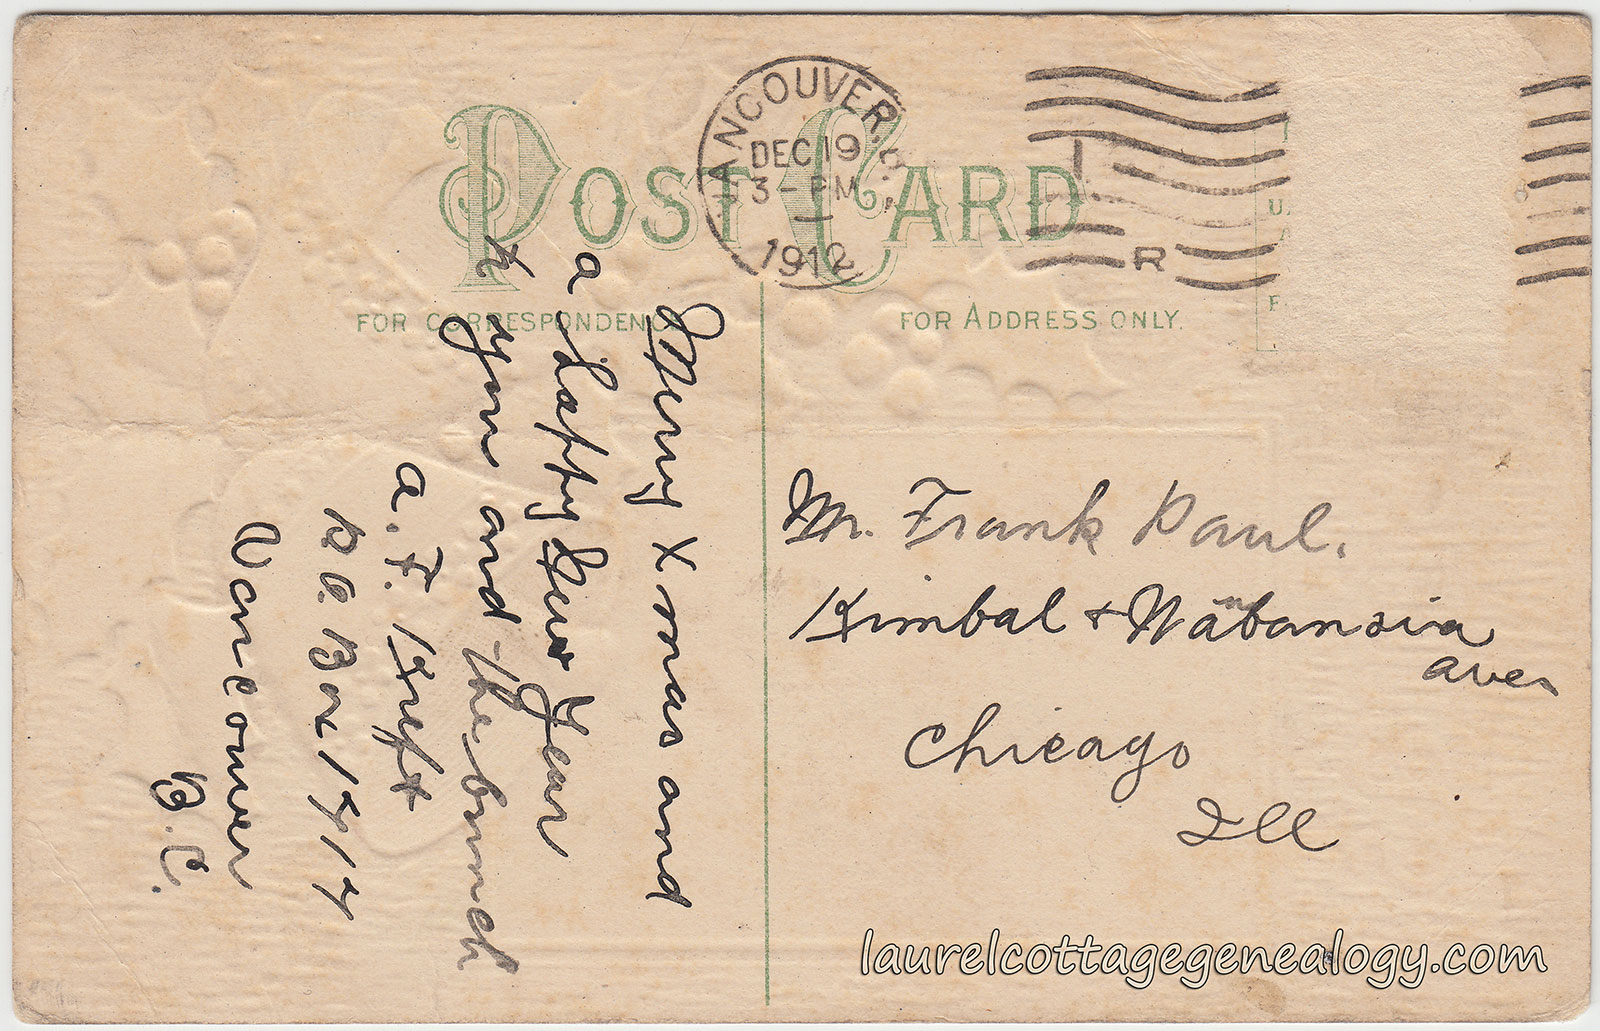 POST CARD
FOR CORRESPONDENCE
FOR ADDRESS ONLY.
VANCOUVER. B.C.
DEC 19
3 - PM
1912
R
Merry Xmas and
a Happy New Year
to you and the bunch
a. F. Kreft
P.O. Box 1717
Vancouver
B.C.
Mr. Frank Paul.
Kimbal + Wabansia
aves
Chicago
Ill
laurelcottagegenealogy.com